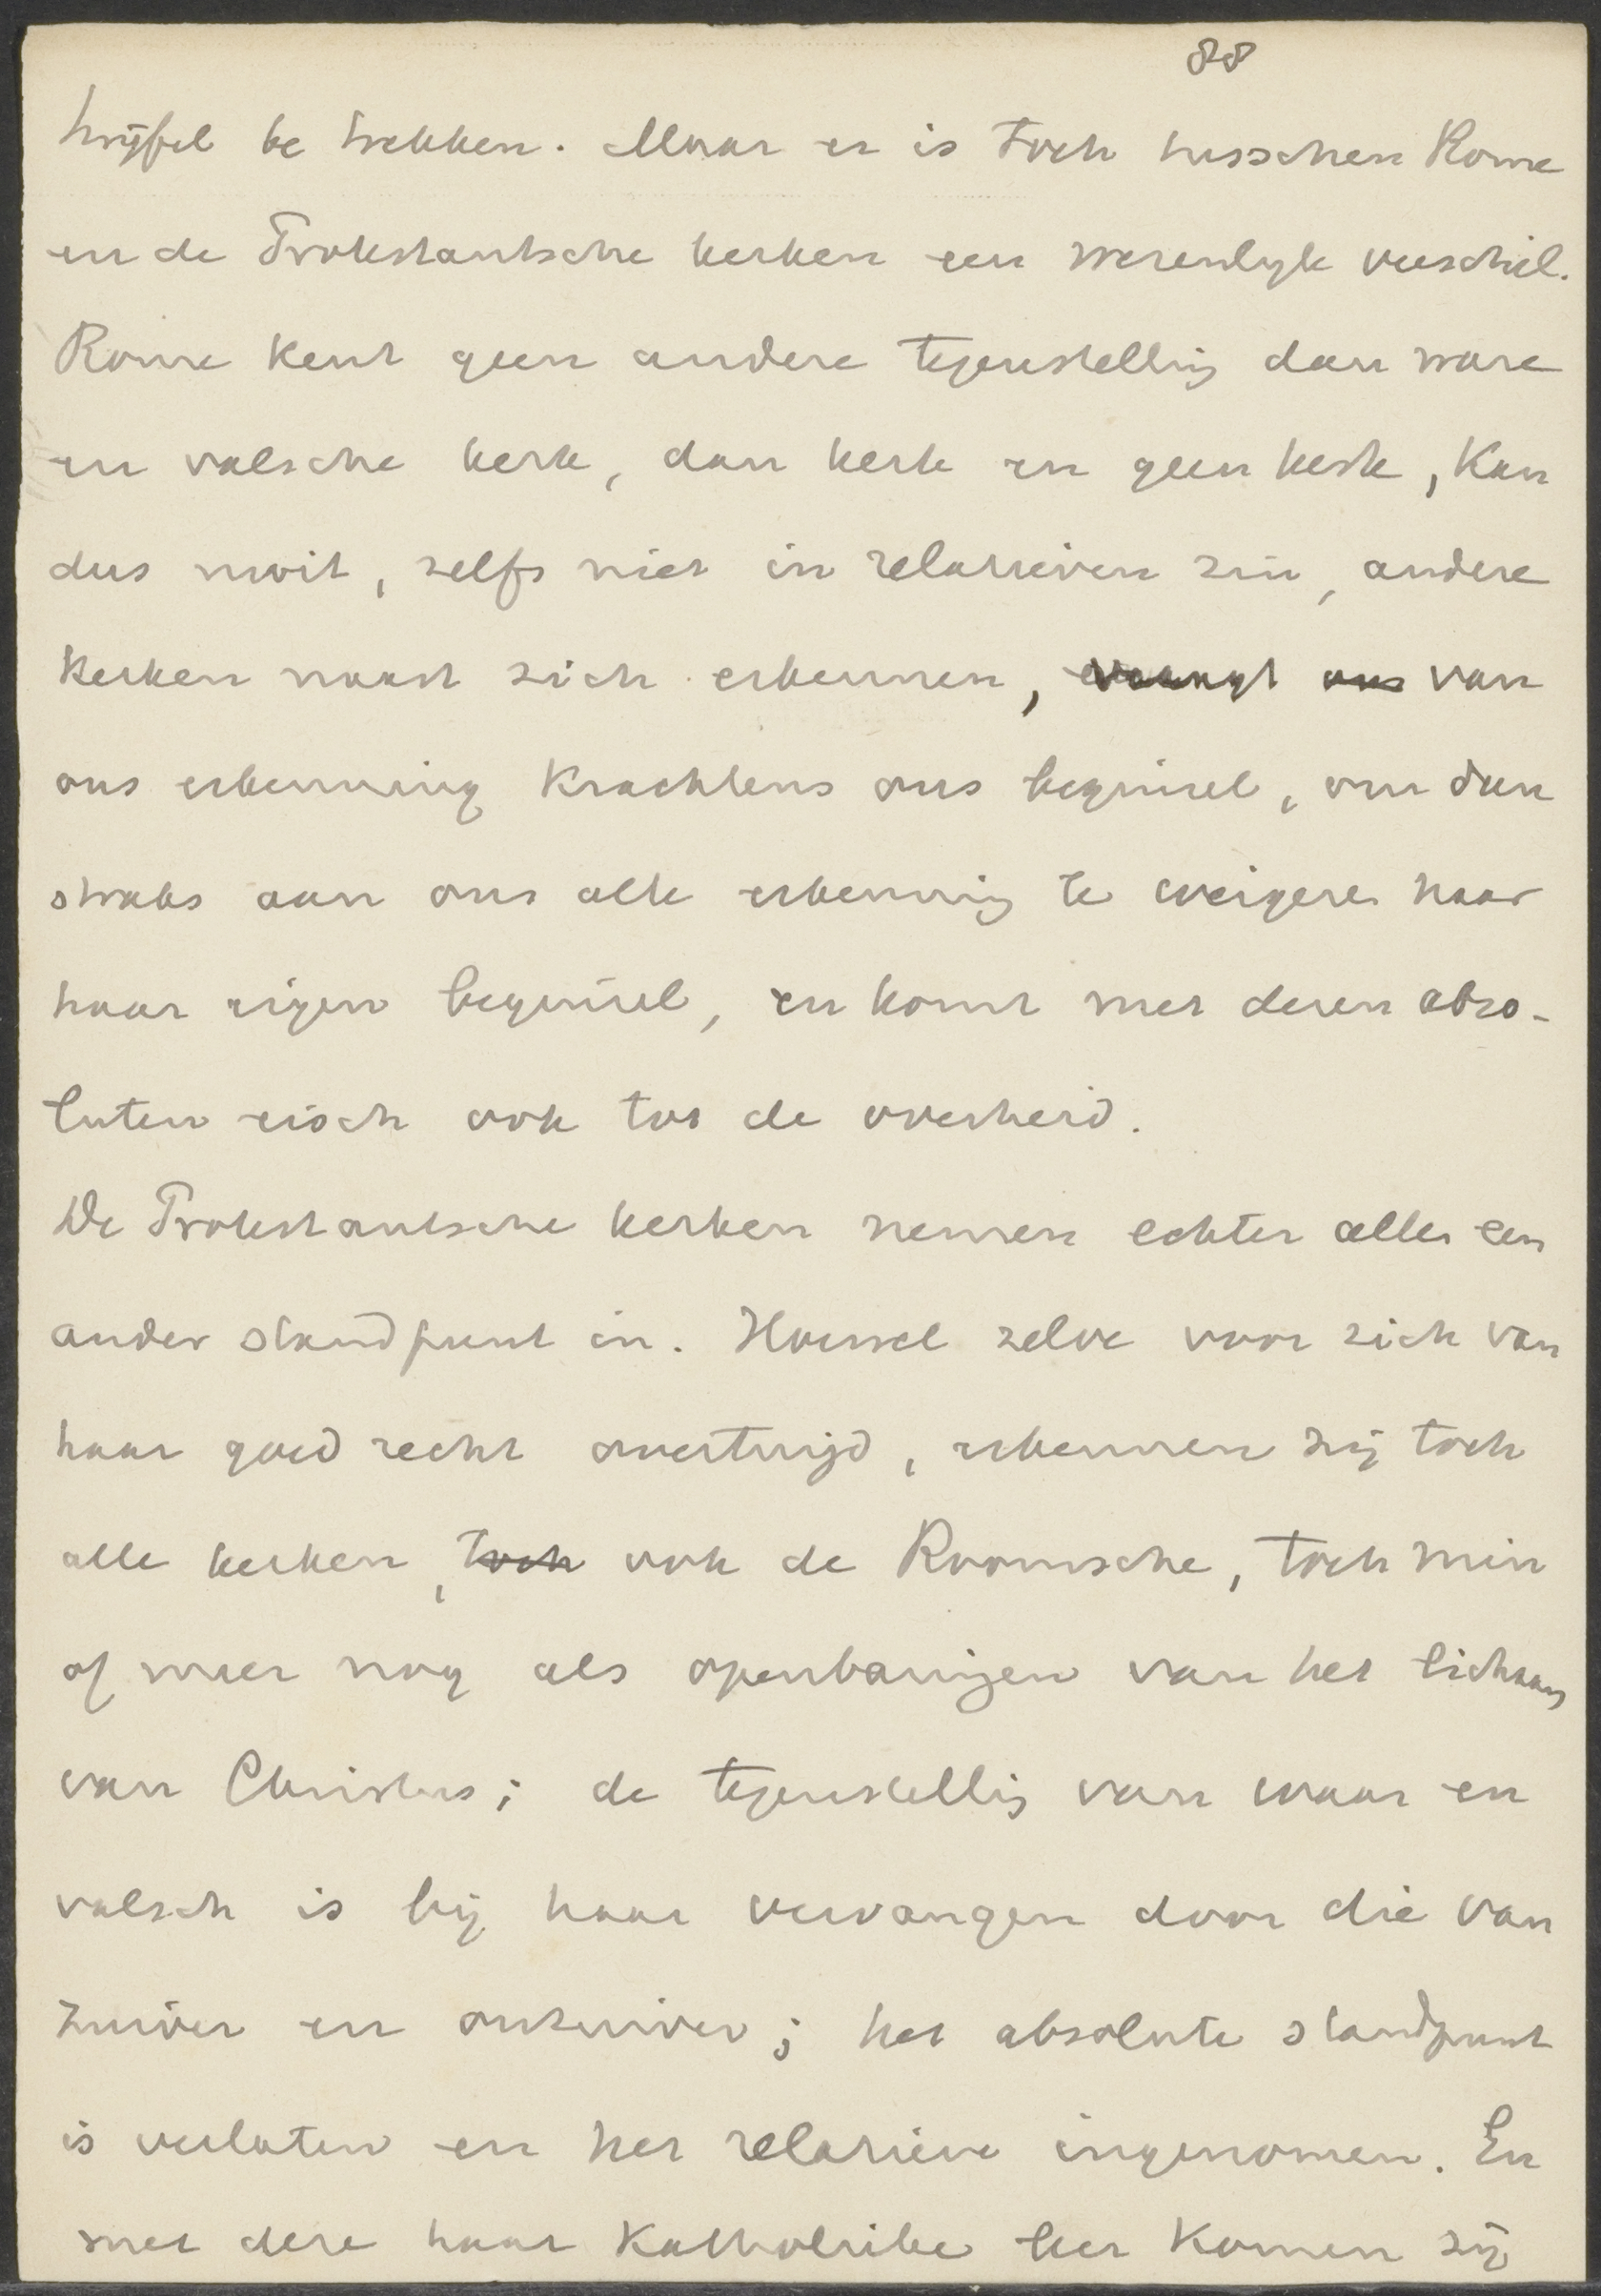 88
twijfel te trekken. Maar er is toch tusschen Rome
en de Protestantsche kerken een wezenlijk verschil.
Rome kent geen andere tegenstelling dan ware
en valsche kerk, dan kerk en geen kerk, kan
dus nooit, zelfs niet in relatieven zin, andere
kerken naast zich erkennen, vraagt ons van
ons erkenning krachtens ons beginsel, om dan
straks aan ons alle erkenning te weigeren naar
haar eigen beginsel, en komt met dezen abso-
luten eisch ook tot de overheid.
De Protestantsche kerken nemen echter allen een
ander standpunt in. Hoewel zelve voor zich van
haar goed recht overtuigd, erkennen zij toch
alle kerken, toch ook de Roomsche, toch min
of meer nog als openbaringen van het lichaam
van Christus; de tegenstelling van waar en
valsch is bij haar vervangen door die van
zuiver en onzuiver; het absolute standpunt
is verlaten en het relatieve ingenomen. En
met deze haar Katholieke leer komen zij